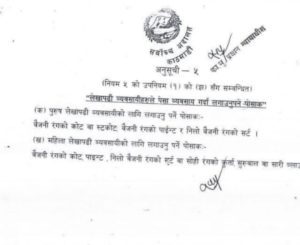 सर्वोच्च अदालत
काठमाडौं
का.मु. प्रधान न्यायाधीश
अनुसूची - ५
(नियम ५ को उपनियम (१) को (झ) सँग सम्बन्धित)
"लेखापढी व्यवसायीहरुले पेसा व्यवसाय गर्दा लगाउनुपर्ने पोसाक"
(क) पुरुष लेखापढी व्यवसायीको लागि लगाउनु पर्ने पोसाकः-
बैजनी रंगको कोट वा स्टकोट, बैजनी रंगको पाईन्ट र निलो बैजनी रंगको सर्ट ।
(ख) महिला लेखापढी व्यवसायीको लागि लगाउनु पर्ने पोसाकः-
बैजनी रंगको कोट, पाइन्ट , निलो बैजनी रंगको सूर्ट वा सोही रंगको कुर्ता, सुरुवाल वा सारी